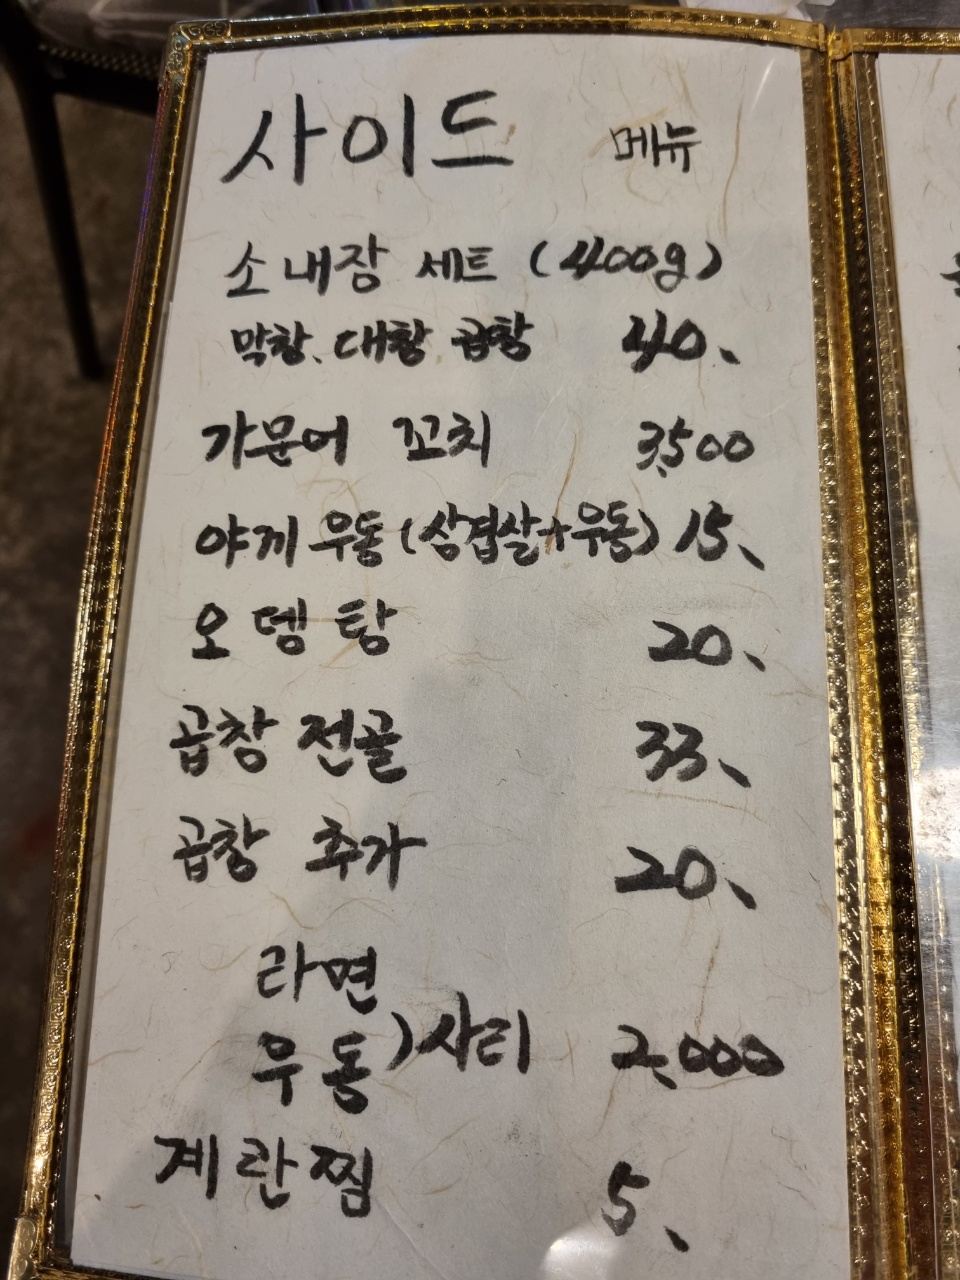 사이드 메뉴
소내장 세트 (400g)
막창、대창 곱창 40、
가문어 꼬치 3,500
야끼 우동 (삼겹살+우동) 15、
오뎅탕 20、
곱창 전골 33、
곱창 추가 20、
라면
우동 ) 사티 2,000
계란찜 5、